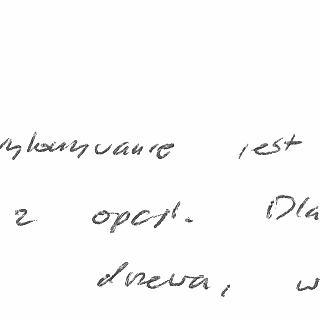 wykonywanie jest
z opcji. Dla
drzewa, w